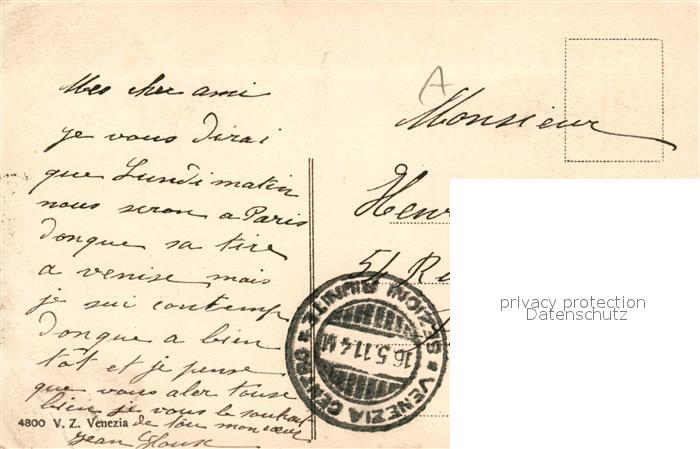 Mes cher ami
je vous dirai
que Lundi matin
nous seron a Paris
donque sa tire
a venise mais
je sui contemp
donque a bien
tôt et je pense
que vous aler touse
bien je vous le souhait
de tou mon cœur
Jean
4800 V. Z. Venezia
A
Monsieur
Henr
51 Ru
SEZIONI RIUNITE
16.5.11.4
VENEZIA CENTRO
privacy protection
Datenschutz